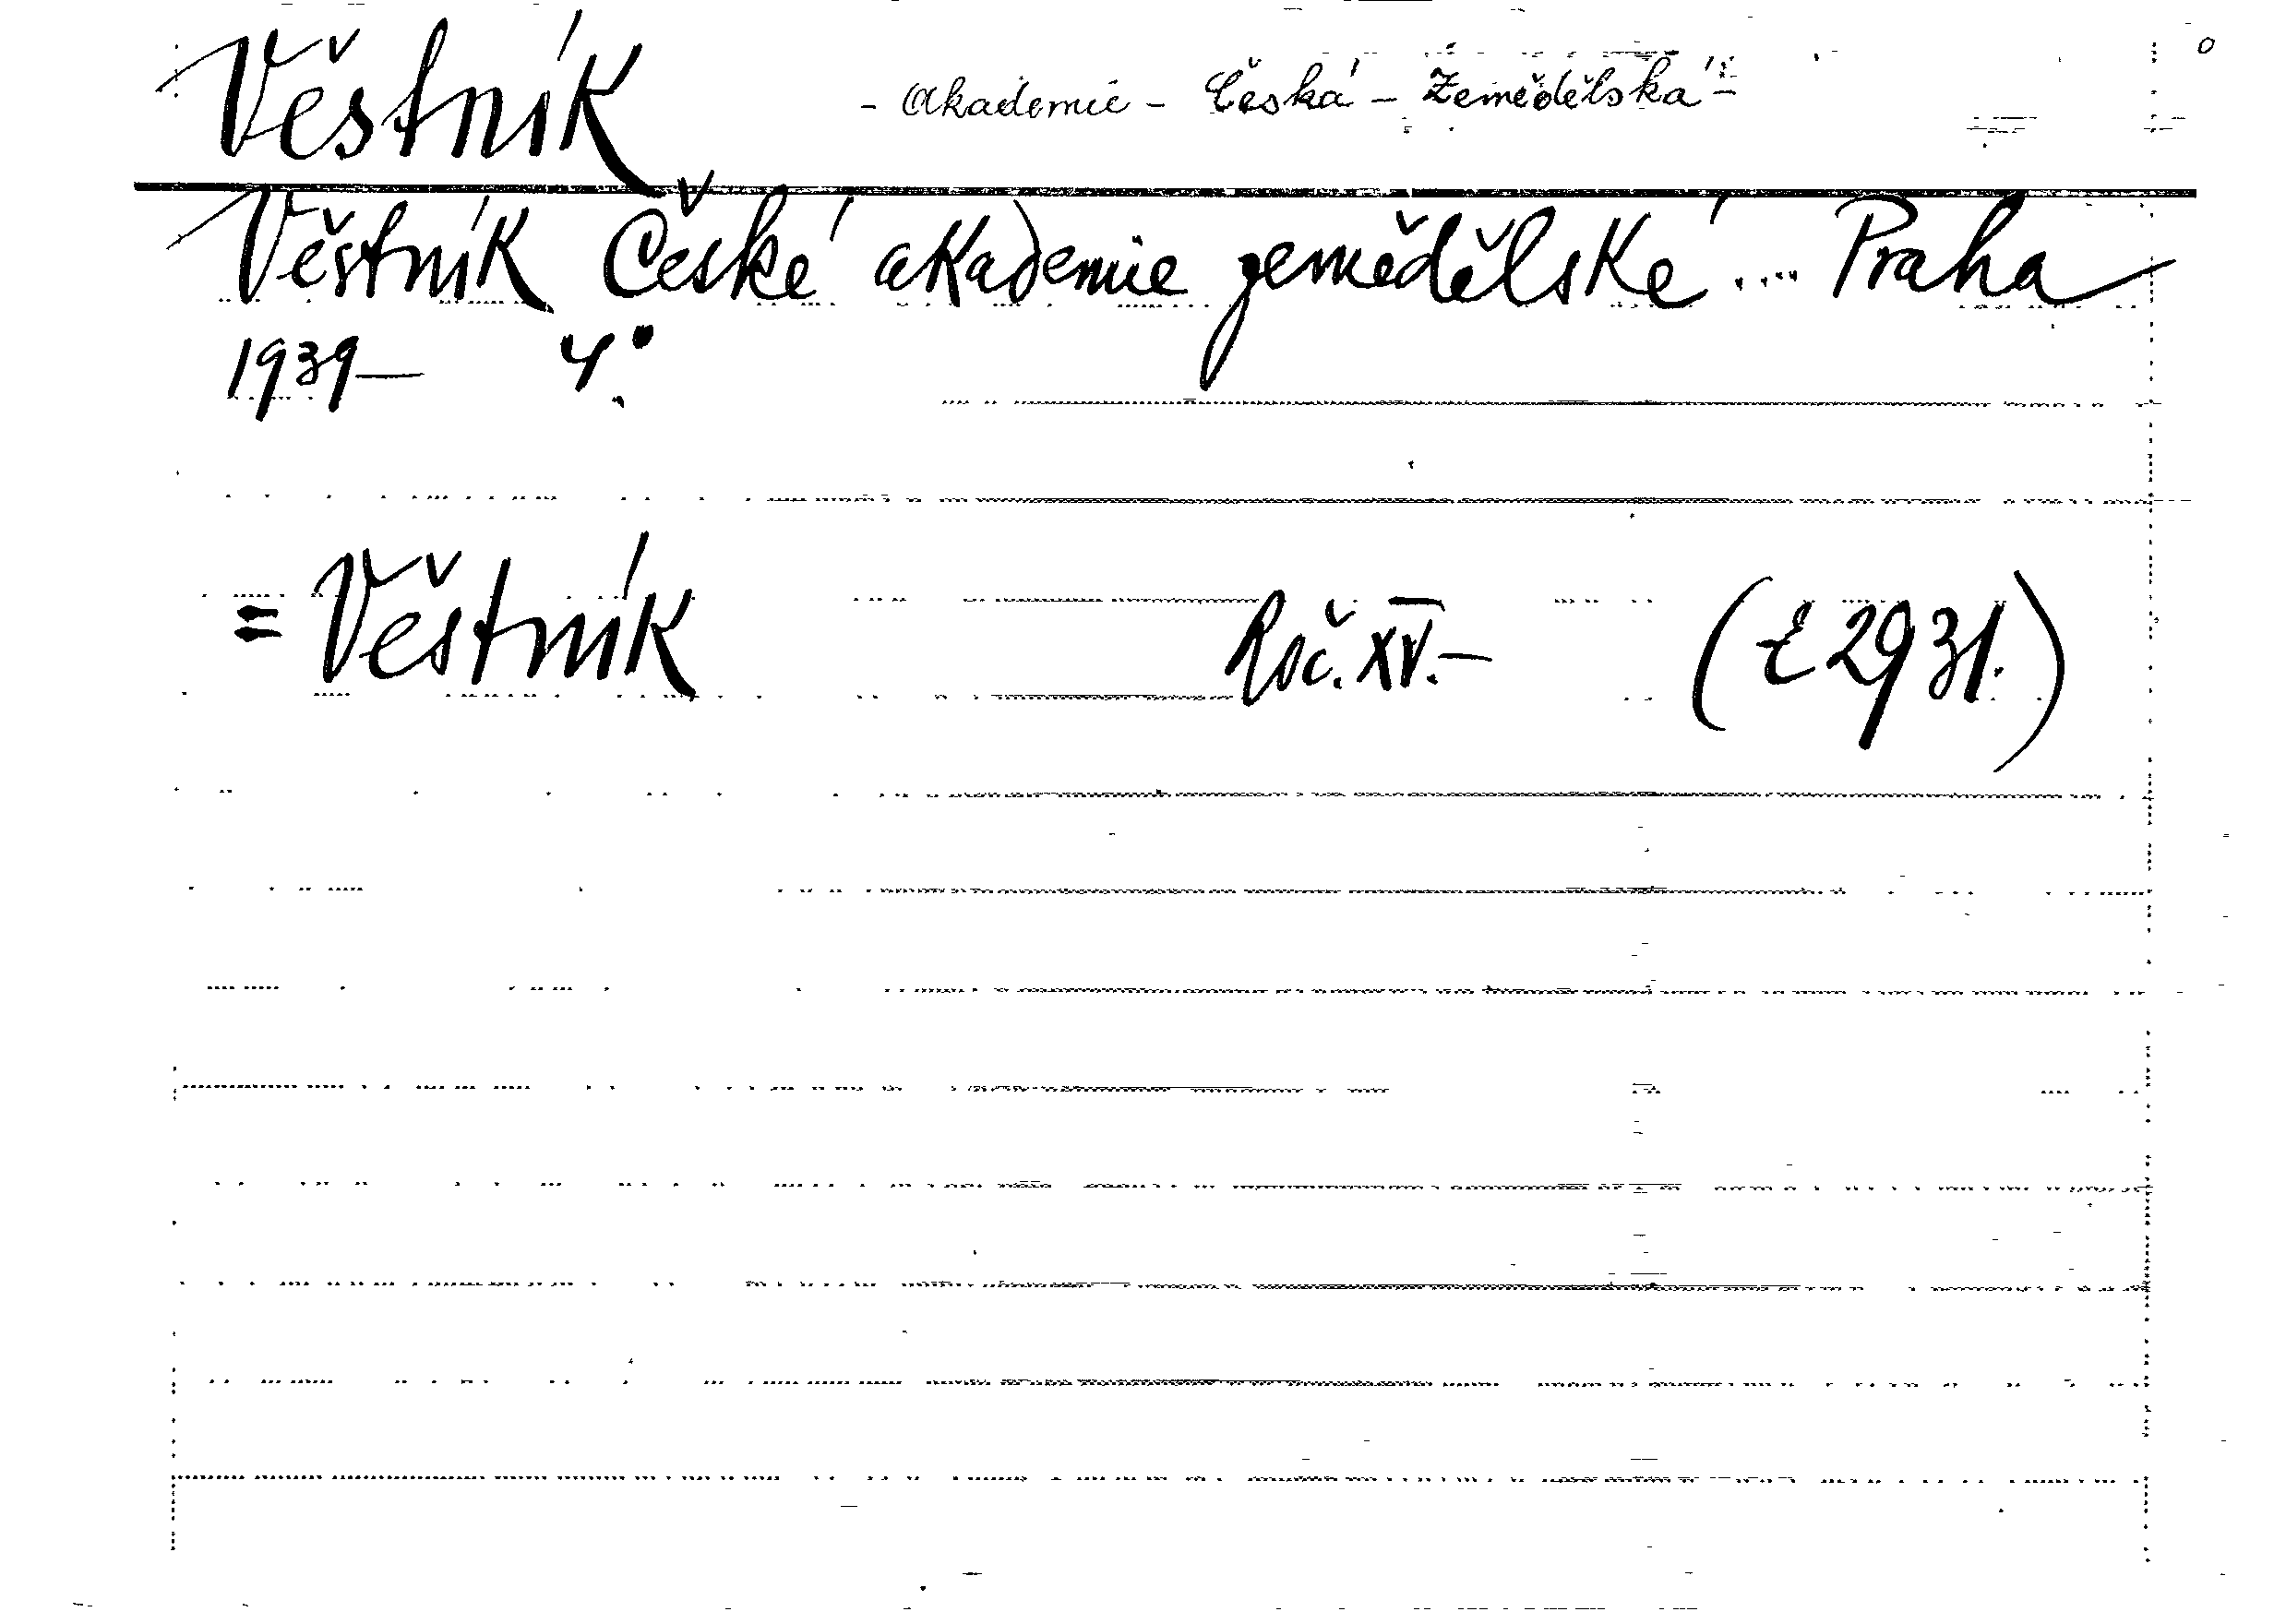 Věstník - Akademie - Česká - Zemědělská -
Věstník České akademie zemědělské .... Praha
1939— 4°.
= Věstník Roč. XV.— (E 2931.)